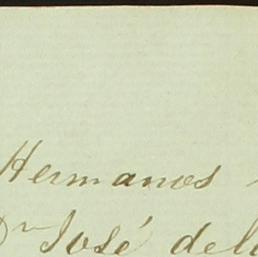 Hermanos
Dn José del